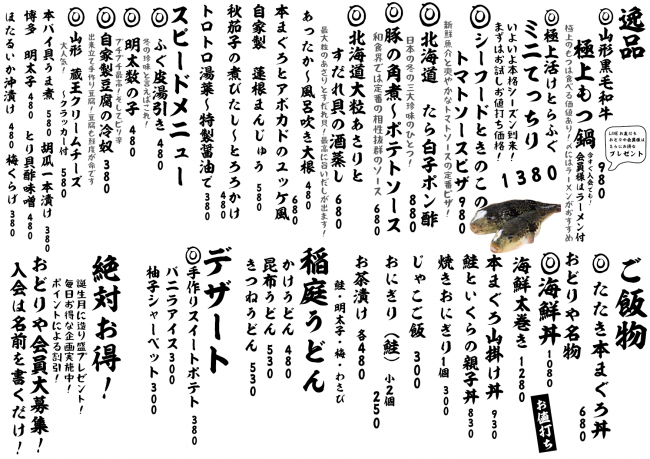 逸品
◎山形黒毛和牛
極上もつ鍋 980
今すぐ入会でも!
会員様はラーメン付
極上のもつは食べる価値あり!〆にはラーメンがおすすめ
LINEお友だち
おどりや会員様は
さらにお得な
プレゼント
◎極上活けとらふぐ
ミニてっちり 1380
いよいよ本格シーズン到来!
まずはお試しお値打ち価格!
◎シーフードときのこの
トマトソースピザ 980
新鮮魚介と爽やかなトマトソースの定番ピザ!
◎北海道 たら白子ポン酢 880
日本の冬の三大珍味のひとつ!
◎豚の角煮〜ポテトソース 680
和食界では定番の相性抜群のソース
北海道大粒あさりと
すだれ貝の酒蒸し 680
最大粒のあさりとすだれ貝!最高に旨いだしが出ます!
あったか〜風呂吹き大根 480
本まぐろとアボカドのユッケ風 680
自家製 蓮根まんじゅう 580
秋茄子の煮びたし〜とろろかけ 480
トロトロ湯葉〜特製醤油で 380
スピードメニュー
◎ふぐ皮湯引き 480
冬の珍味と言えばこれ!
◎明太数の子 480
プチプチ最高!そしてピリ辛
◎自家製豆腐の冷奴 380
出来立て手作り豆腐!豆腐も鮮度が命です
◎山形 蔵王クリームチーズ
〜クラッカー付 580
大人気!
本バイ貝うま煮 580 胡瓜一本漬け 380
博多 明太子 480 とり貝酢味噌 480
ほたるいか沖漬け 480 梅くらげ 380
ご飯物
◎たたき本まぐろ丼 680
おどりや名物
◎海鮮丼 1080
お値打ち
海鮮太巻き 1280
本まぐろ山掛け丼 930
鮭といくらの親子丼 830
焼きおにぎり1個 300
じゃこご飯 300
おにぎり(鮭)小2個 250
お茶漬け 各480
鮭・明太子・梅・わさび
稲庭うどん
かけうどん 480
昆布うどん 530
きつねうどん 530
デザート
◎手作りスイートポテト 380
バニラアイス 300
柚子シャーベット 300
絶対お得!
誕生月に造り盛プレゼント!
毎日お得な企画実施中!
ポイントによる割引!
おどりや会員大募集!
入会は名前を書くだけ!